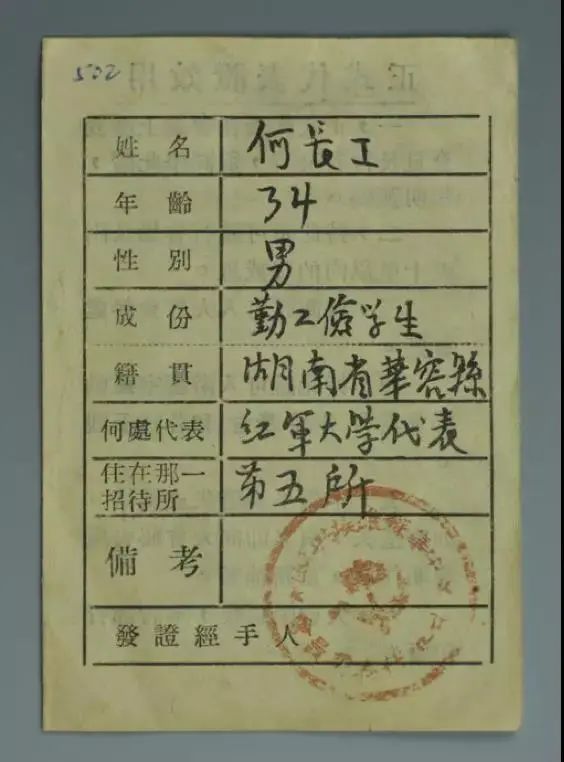 502
姓名 何長工
年齡 34
性别 男
成份 勤工儉学生
籍貫 湖南省華容縣
何處代表 红軍大學代表
住在那一招待所 第五所
備考
發證經手人